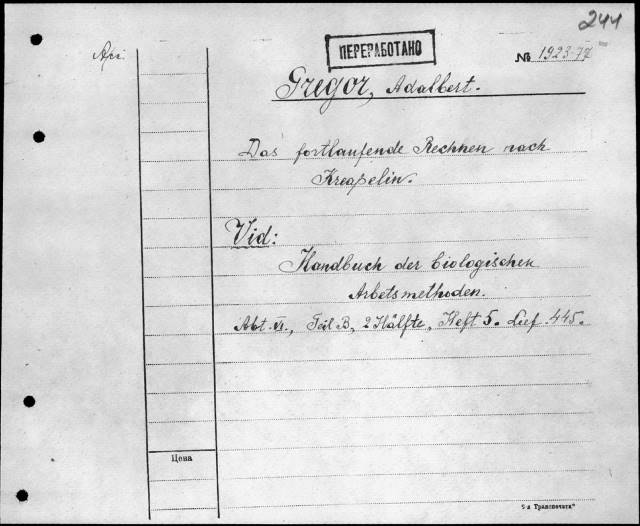 244
ПЕРЕРАБОТАНО
№ 1923-77
Gregor, Adalbert.
Das fortlaufende Rechnen nach
Kreapelin.
Vid:
Handbuch der biologischen
Arbetsmethoden.
Abt. VI., Teil B, 2 Hälfte, Heft 5. Lief. 445.
Цена